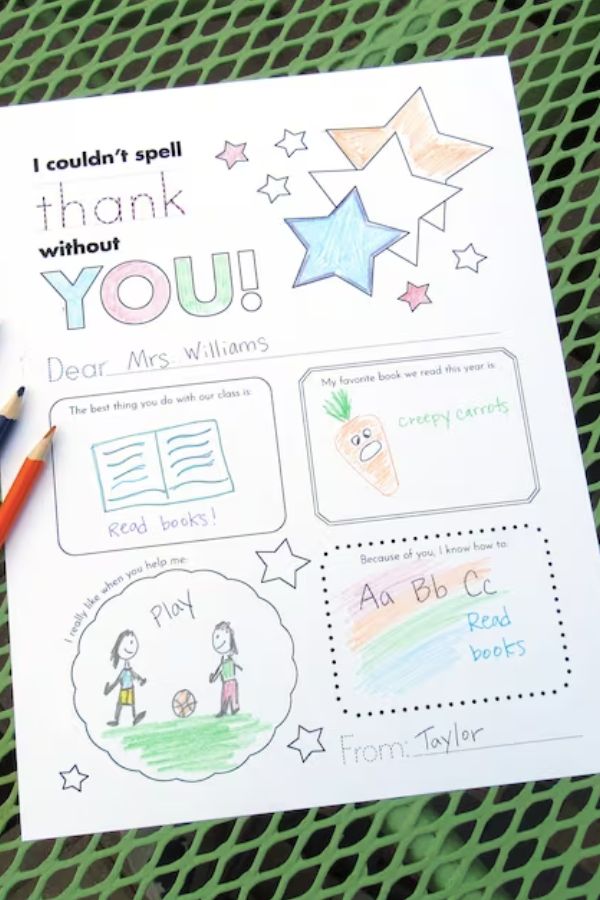 I couldn't spell
thank
without
YOU!
Dear Mrs. Williams
The best thing you do with our class is:
Read books!
My favorite book we read this year is:
creepy carrots
I really like when you help me:
Play
Because of you, I know how to:
Aa Bb Cc
Read
books
From: Taylor